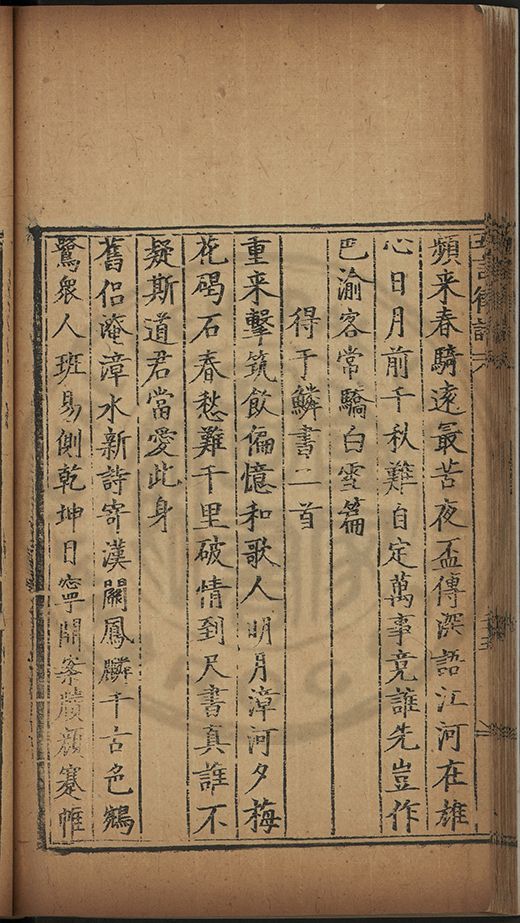 頻来春騎遠最苦夜盃傳深語江河在雄
心日月前千秋難自定萬事竟誰先豈作
巴渝客常驕白雪篇
得于鱗書二首
重来擊筑飲偏憶和歌人明月漳河夕梅
花碣石春愁難千里破情到尺書真誰不
疑斯道君當愛此身
舊侶淹漳水新詩寄漢關鳳麟千古色鵷
鷺衆人班易側乾坤日寧開案牘顏蹇帷